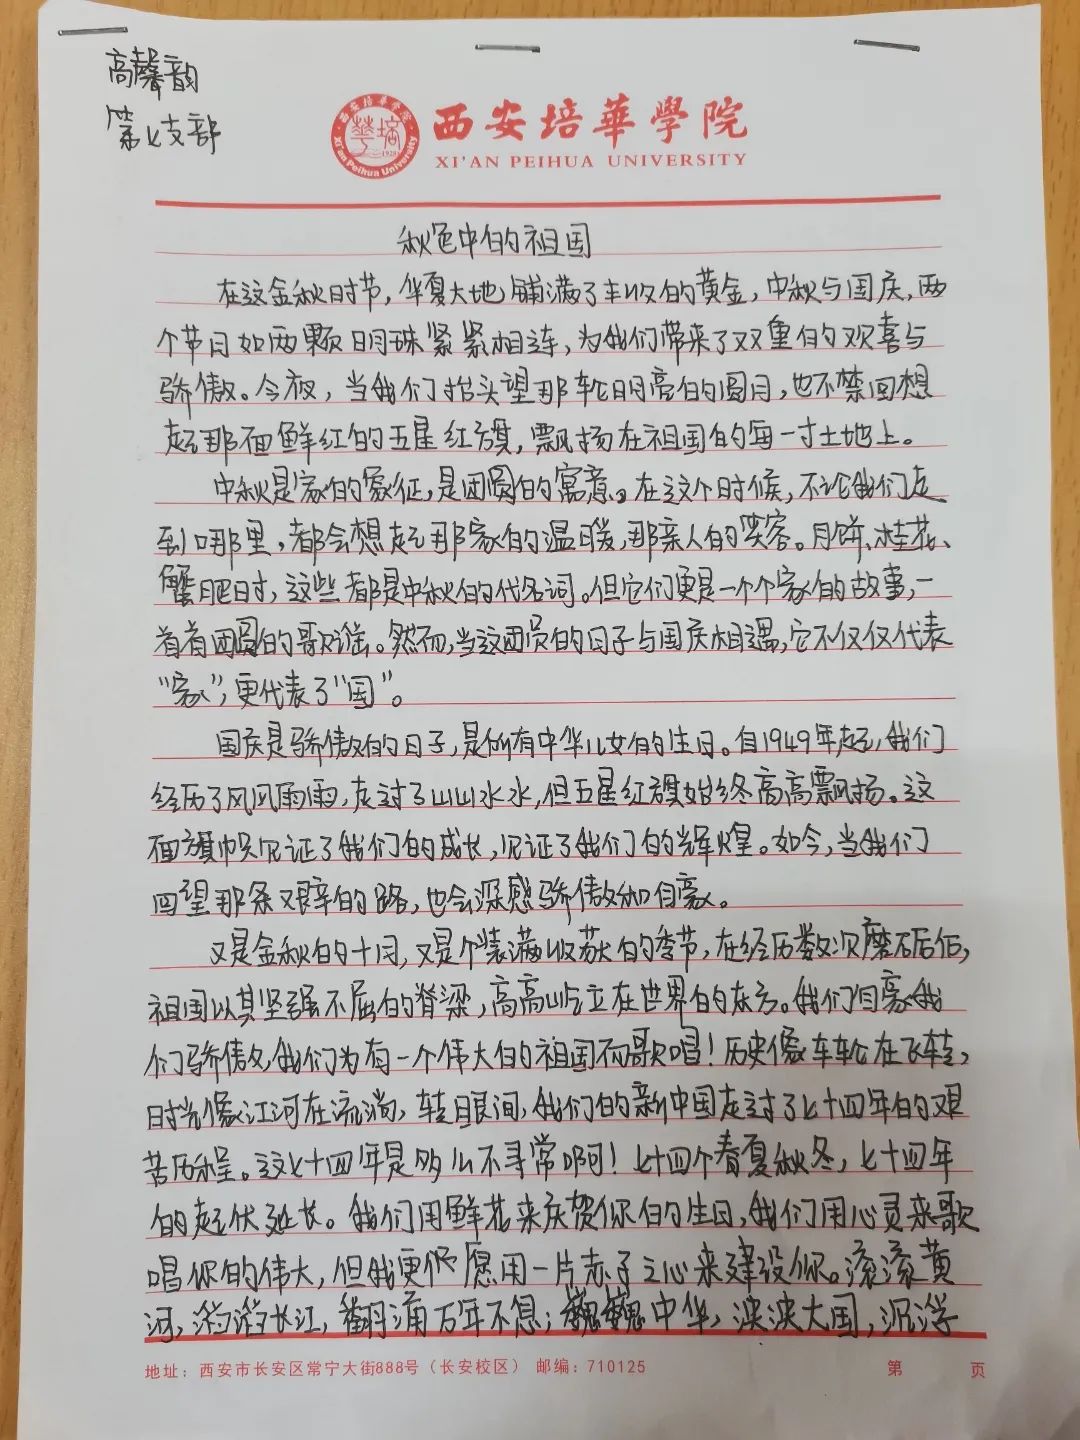 高馨韵
第七支部
西安培華學院
XI'AN PEIHUA UNIVERSITY
秋色中的祖国
在这金秋时节,华夏大地铺满了丰收的黄金,中秋与国庆,两
个节日如两颗明珠紧紧相连,为我们带来了双重的欢喜与
骄傲。今夜,当我们抬头望那轮明亮的圆月,也不禁回想
起那面鲜红的五星红旗,飘扬在祖国的每一寸土地上。
中秋是家的象征,是团圆的寓意。在这个时候,不论我们走
到哪里,都会想起那家的温暖,那亲人的笑容。月饼、桂花、
蟹肥时,这些都是中秋的代名词。但它们更是一个个家的故事,一
首首团圆的歌谣。然而,当这团员的日子与国庆相遇,它不仅仅代表
“家”,更代表了“国”。
国庆是骄傲的日子,是所有中华儿女的生日。自1949年起,我们
经历了风风雨雨,走过了山山水水,但五星红旗始终高高飘扬。这
面旗帜见证了我们的成长,见证了我们的辉煌。如今,当我们
回望那条艰辛的路,也会深感骄傲和自豪。
又是金秋的十月,又是个装满收获的季节,在经历数次磨砺后,
祖国以其坚强不屈的脊梁,高高屹立在世界的东方。我们自豪我
们骄傲,我们为有一个伟大的祖国而歌唱!历史像车轮在飞转,
时光像江河在流淌,转眼间,我们的新中国走过了七十四年的艰
苦历程。这七十四年是多么不寻常啊!七十四个春夏秋冬,七十四年
的起伏延长。我们用鲜花来庆贺你的生日,我们用心灵来歌
唱你的伟大,但我更愿用一片赤子之心来建设你。滚滚黄
河,滔滔长江,翻涌万年不息;巍巍中华,泱泱大国,沉浮
地址:西安市长安区常宁大街888号(长安校区) 邮编:710125
第 页